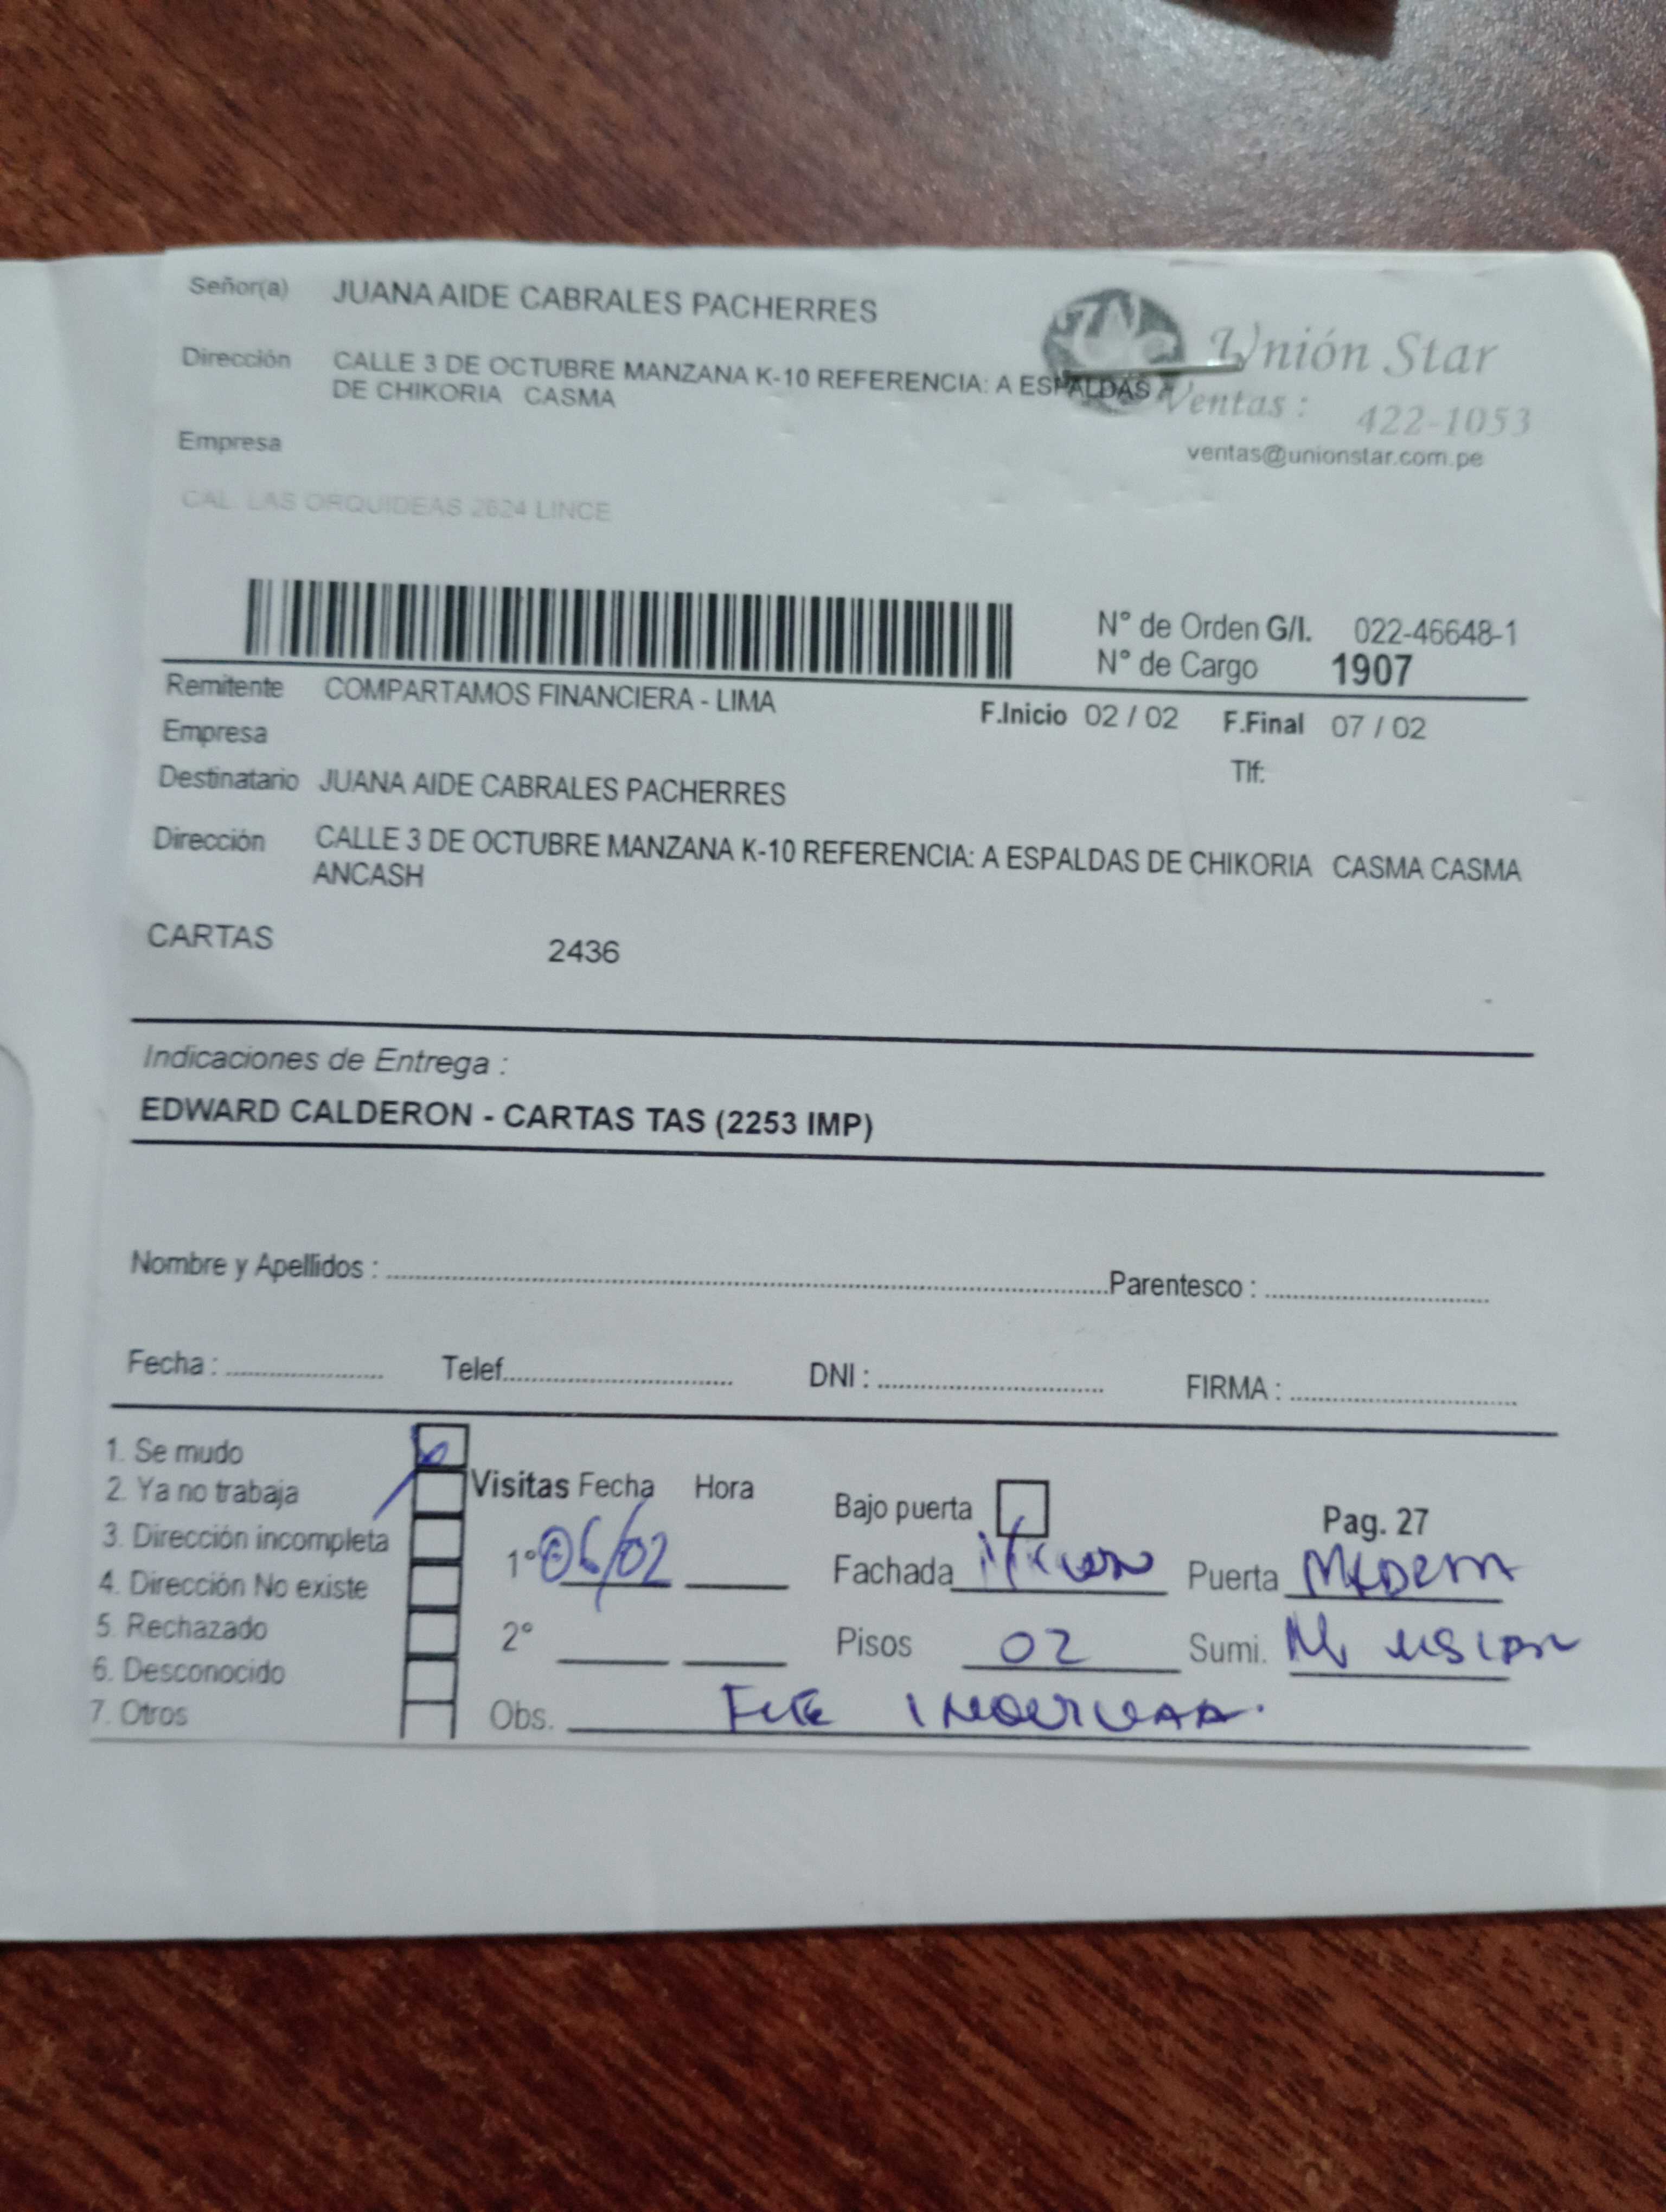 Señor(a) JUANA AIDE CABRALES PACHERRES
Dirección CALLE 3 DE OCTUBRE MANZANA K-10 REFERENCIA: A ESPALDAS
DE CHIKORIA CASMA
Unión Star
Ventas : 422-1053
ventas@unionstar.com.pe
Empresa
CAL. LAS ORQUIDEAS 2624 LINCE
N° de Orden G/I. 022-46648-1
N° de Cargo 1907
Remitente COMPARTAMOS FINANCIERA - LIMA
F.Inicio 02 / 02 F.Final 07 / 02
Empresa
Tlf:
Destinatario JUANA AIDE CABRALES PACHERRES
Dirección CALLE 3 DE OCTUBRE MANZANA K-10 REFERENCIA: A ESPALDAS DE CHIKORIA CASMA CASMA
ANCASH
CARTAS 2436
Indicaciones de Entrega :
EDWARD CALDERON - CARTAS TAS (2253 IMP)
Nombre y Apellidos : Parentesco :
Fecha : Telef. DNI : FIRMA :
1. Se mudo
2. Ya no trabaja
3. Dirección incompleta
4. Dirección No existe
5. Rechazado
6. Desconocido
7. Otros
Visitas Fecha Hora
1° 06/02
2°
Bajo puerta
Pag. 27
Fachada Puerta
Pisos 02 Sumi.
Obs. FUE